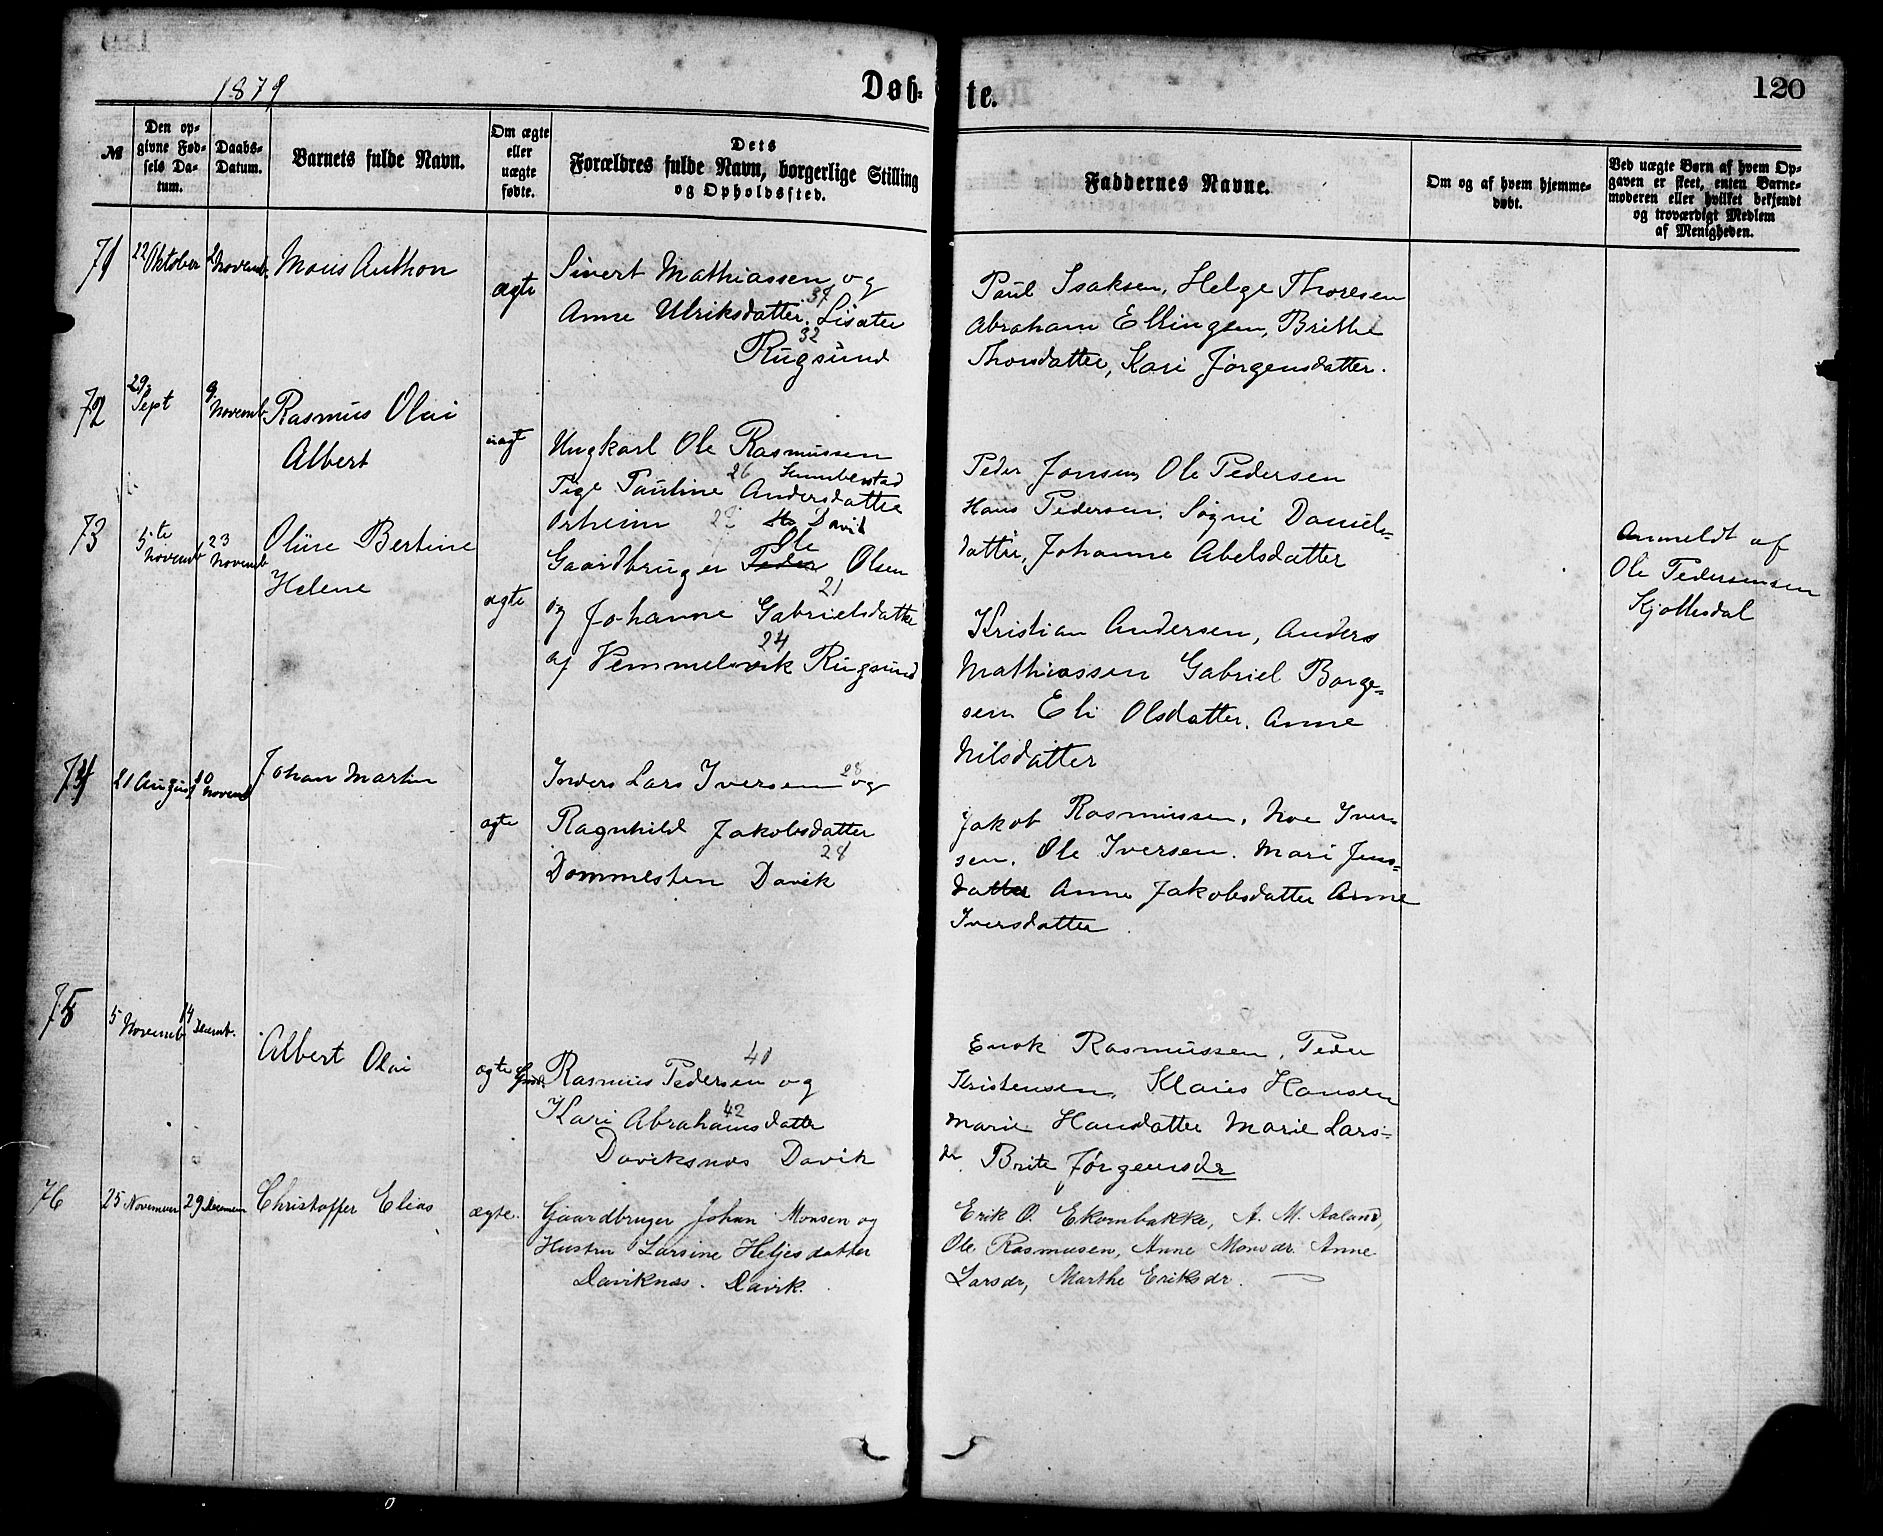 1879
Døb-
te.
120
№
Den op-
givne Fød-
sels Da-
tum.
Daabs-
Datum.
Barnets fulde Navn.
Om ægte
eller
uægte
fødte.
Dets
Forældres fulde Navn, borgerlige Stilling
og Opholdssted.
Faddernes Navne.
Om og af hvem hjemme-
døbt.
Ved uægte Børn af hvem Op-
gaven er skeet, enten Barne-
moderen eller hvilket bekjendt
og troværdigt Medlem
af Menigheden.
71
22 Oktober
2 Novemb.
Mons Anthon
ægte
Sivert Mathiassen og
37
Anne Ulriksdatter. Lisæter
32
Rugsund
Paul Isaksen, Helge Thoresen
Abraham Ellingsen, Brithe
Thorsdatter, Kari Jørgensdatter.
72
29.
Sept
9.
Novemb.
Rasmus Olai
Albert
uægt
Ungkarl Ole Rasmussen
26
Pige Pauline Andersdatter
Orheim 28 Davik
Peder Jonsen, Ole Pedersen
Hans Pedersen, Søgni Daniels-
datter, Johanne Abelsdatter
Anmeldt af
Ole Pedersensen
Kjøllesdal
73
5te
Novemb
23
Novemb
Oline Bertine
Helene
ægte
Ole
Gaardbruger Peder Olsen
21
og Johanne Gabrielsdatter
24
af Vemmelsvik Rugsund
Kristian Andersen, Anders
Mathiassen Gabriel Børge-
sen Eli Olsdatter. Anne
Nilsdatter
74
21 August
30
Novemb
Johan Martin
ægte
Inders Lars Iversen 28 og
Ragnhild Jakobsdatter
28
Dommesten Davik
Jakob Rasmussen, Noe Iver-
sen. Ole Iversen. Mari Jens-
datter Anne Jakobsdatter Anne
Iversdatter
75
5
Novemb
14
Decemb.
Albert Olai
ægte
40
Gaardb. Rasmus Pedersen og
42
Kari Abrahamsdatter
Daviksnæs Davik
Enok Rasmussen, Peder
Kristensen, Klaus Hansen
Marie Hansdatter Marie Lars-
dr. Brite Jørgensdr
76
25 November
29 Decemem
Christoffer Elias
ægte.
Gaardbruger Johan Monsen og
Hustru Larsine Heljesdatter
Daviknæs. Davik.
Erik O. Ekornbakke, A. M. Aaland,
Ole Rasmusen, Anne Monsdr. Anne
Larsdr, Marthe Eriksdr.